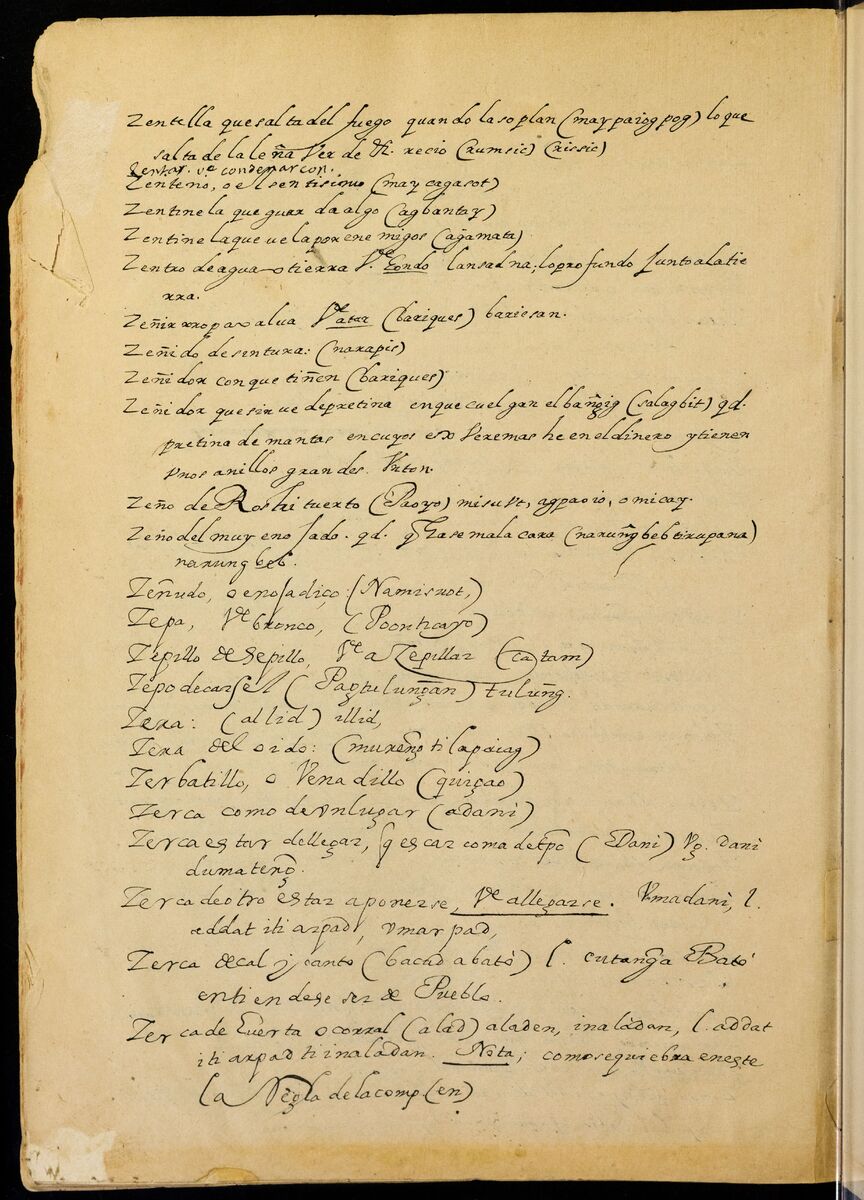 Zentella que salta del fuego quando la soplan (maypaiogpog) lo que
salta de la leña Ver de &. recio (rumsic) (rissic)
Zentar. vᵉ condenar con.
Zenteno, o el sentisimo (may cagasot)
Zentinela que guarda algo (agbantay)
Zentinela que vela por enemigos (agamata)
Zentro de agua o tierra Vᵈᵉ Fondo lansad na; lo profundo Junto a la tie
rra.
Zeñir rropa o alua Vᵈᵉ atar (bariques) bariesan.
Zeñido de sintura: (narapis)
Zeñidor con que tiñen (bariques)
Zeñidor que sirve de pretina en que cuelgan el bañgig (salagbit) qd.
pretina de mantas en cuyos esx Veremas he en el dinero y tienen
Vnos anillos grandes. Vrton.
Zeño de Rostri tuerto (Paoyo) misuut, agpaoio, o micay.
Zeño del muy enojado. qd. q hase mala cara (naruñg beb tirupana)
narung beb.
Zeñudo, o enojadiço: (Namisuot,)
Zepa, Vᵈᵉ bronco, (Poonticayo)
Zepillo de Sepillo, Vᵈᵉ a Zepillar (catam)
Zepo de carsel (Pagtulungan) tuluñg.
Zera: (allid) illid,
Zera del oido: (mureng ti lapaiag)
Zerbatillo, o Venadillo (quiçao)
Zerca como de vn lugar (adani)
Zerca estar de llegar, q escar coma de tpõ (Dani) Vg. dani
dumateng.
Zerca de otro estar a ponerse, Vᵈᵉ allegarse. Vmadani, l.
addat iti arpad, vmarpad,
Zerca de cal y canto (bacud a bató) l. cutanga Bató
entiendese ser de Pueblo.
Zerca de Euerta o corral (alad) aladen, inaládan, l. addat
iti arpad ti inaladan. Nota; como se quiebra en este
la Regla de la comp. (en)